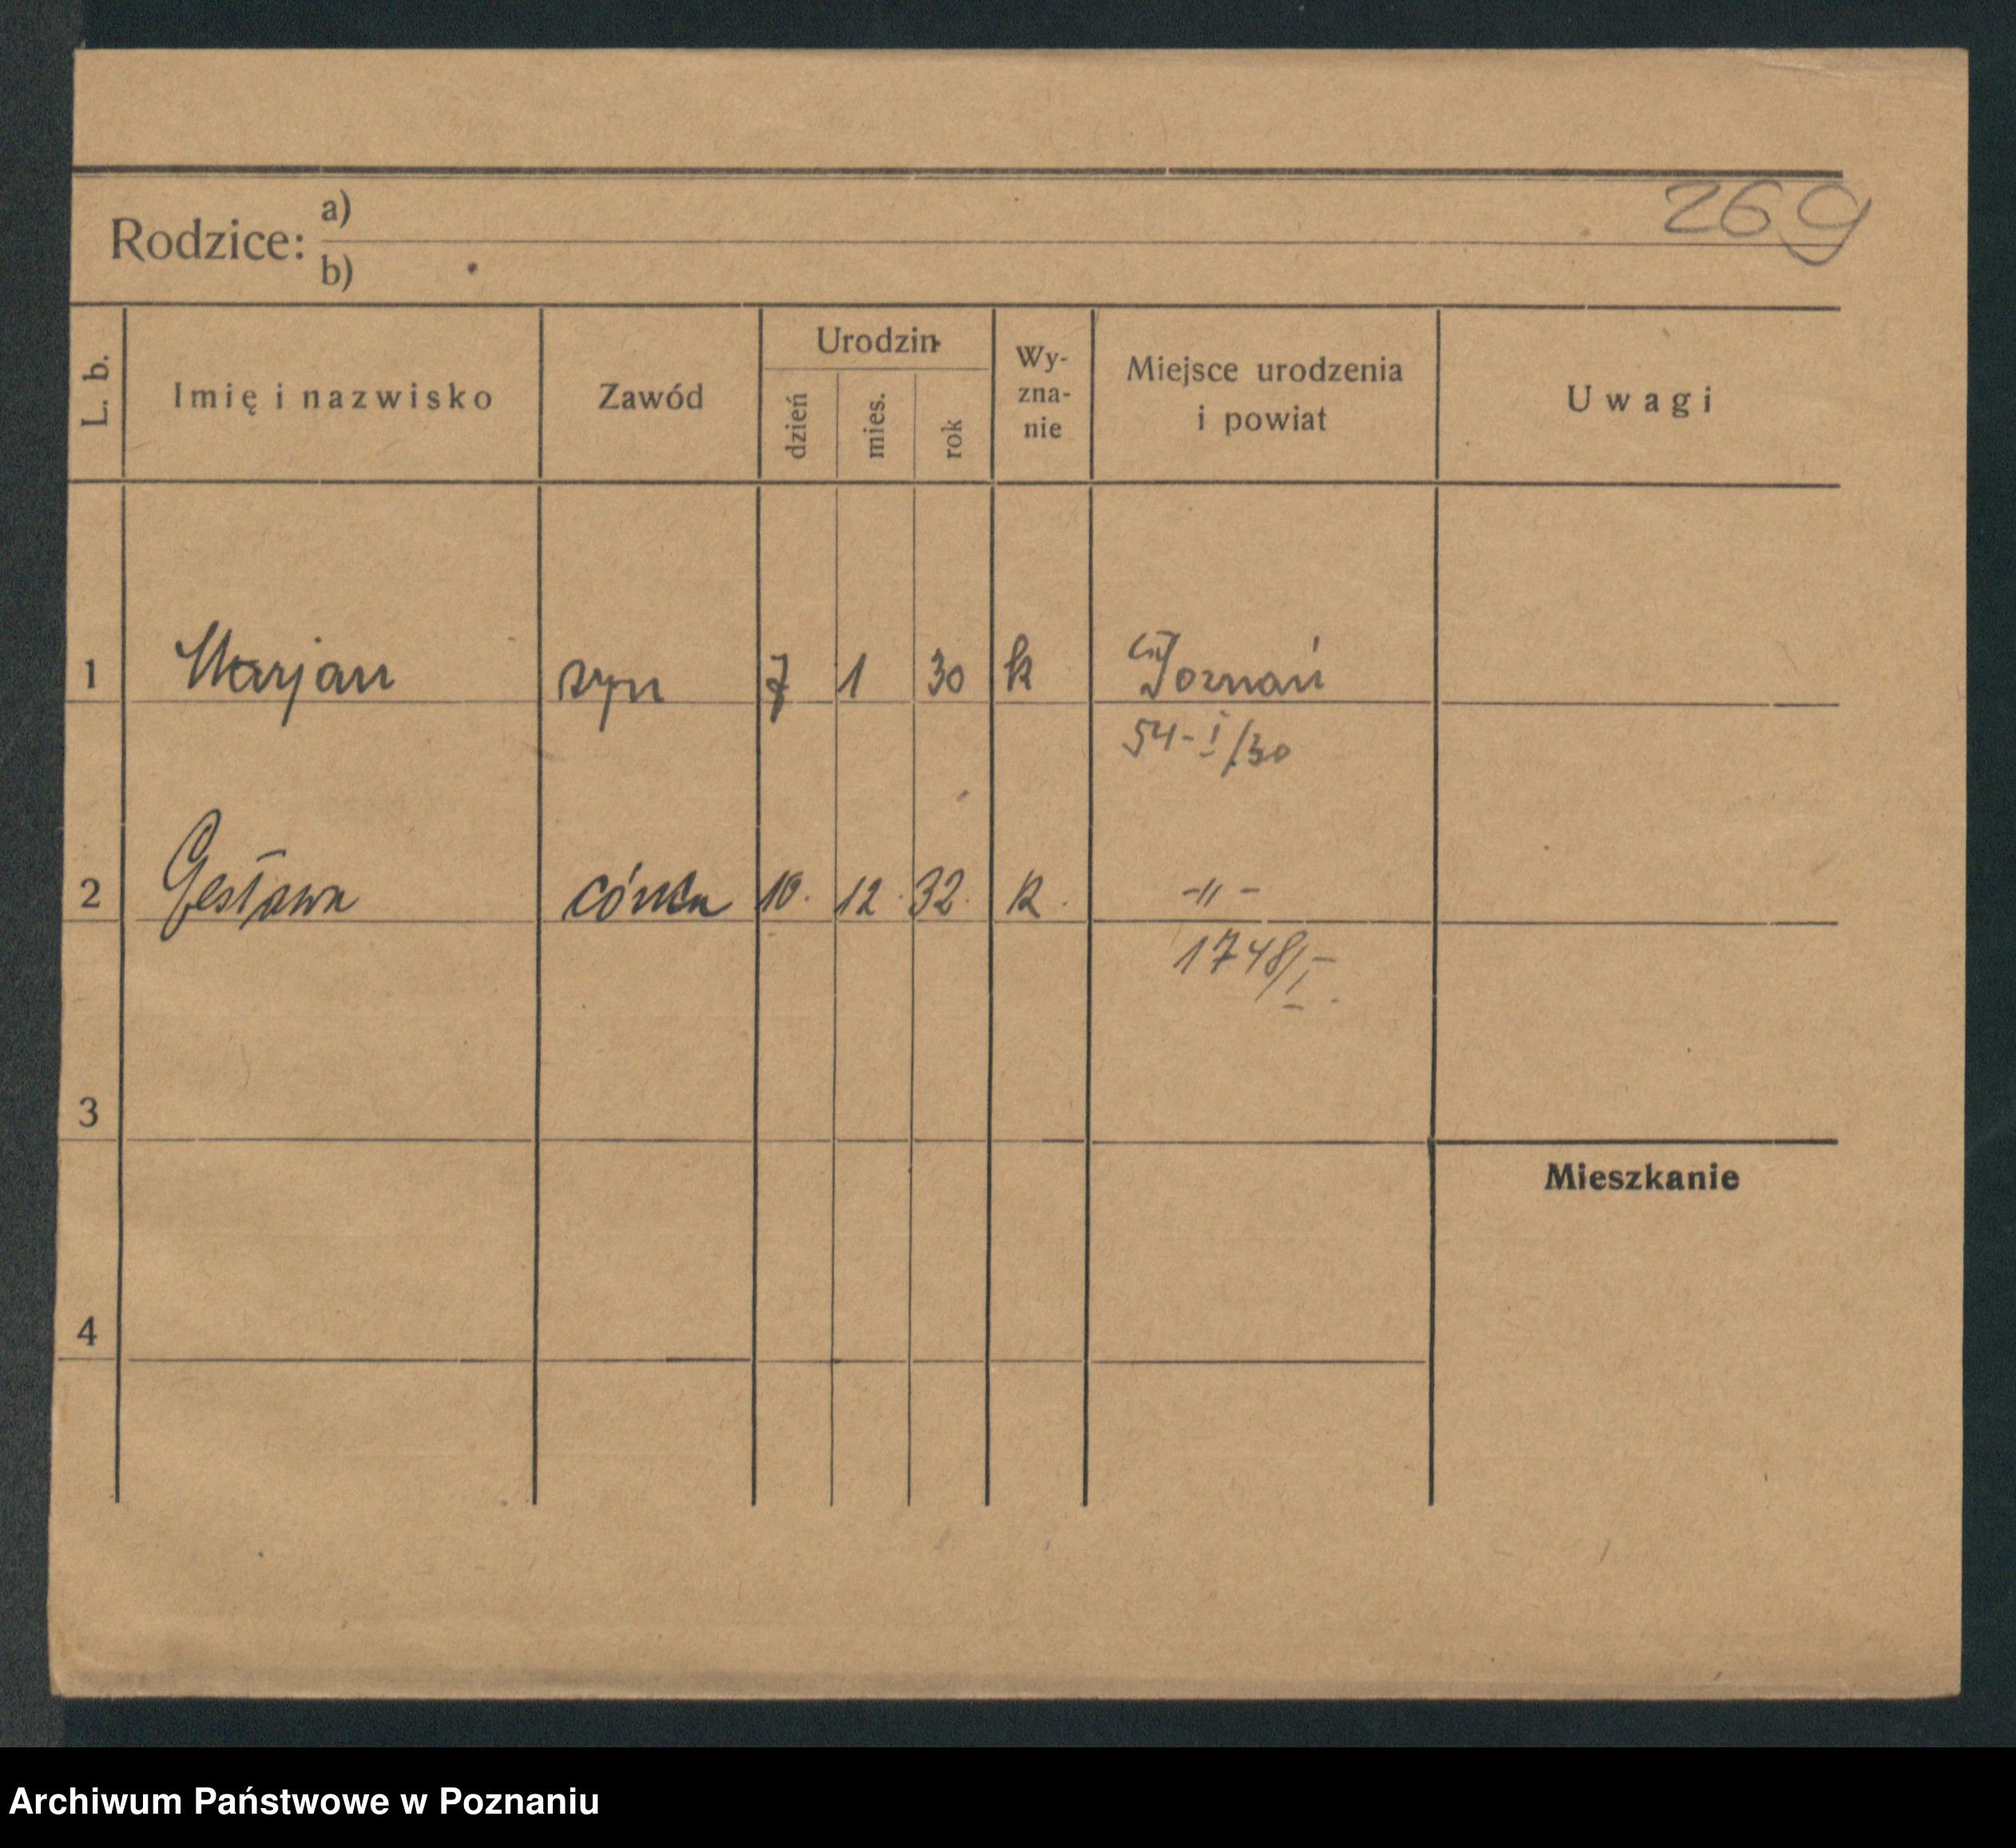 269
Rodzice: a)
b)
L. b. Imię i nazwisko Zawód Urodzin dzień mies. rok Wy-zna-nie Miejsce urodzenia i powiat Uwagi
1 Marjan syn 7 1 30 k Poznań
54-I/30
2 córka 10. 12. 32. k. -"-
1748/I.
3
Mieszkanie
4
Archiwum Państwowe w Poznaniu